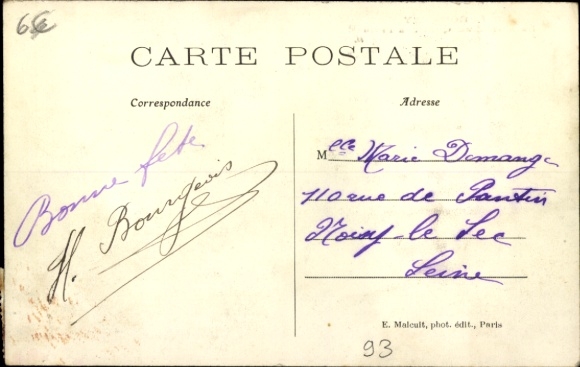 6€
CARTE POSTALE
Correspondance
Adresse
Bonne fête
H. Bourgeois
Mlle Marie Demange
110 rue de Pantin
Noisy-le-Sec
Seine
E. Malcuit, phot. édit., Paris
93